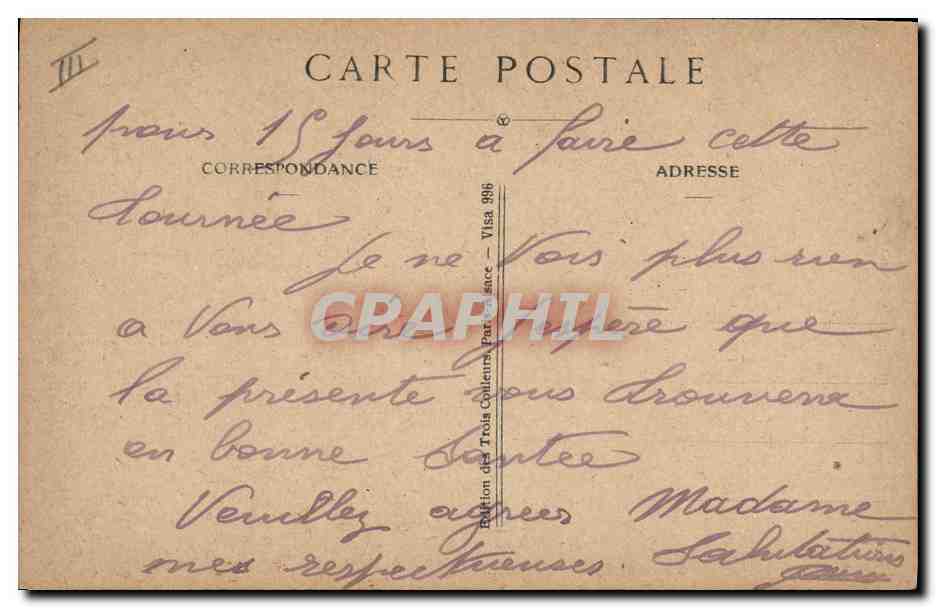 III
CARTE POSTALE
pour 15 jours a faire cette
CORRESPONDANCE
ADRESSE
tournée
Je ne Vois plus rien
a Vous dire j'espère que
la présente vous trouvera
en bonne Santée
Veuillez agréer Madame
mes respectueuses Salutations
Edition des Trois Couleurs, Paris-Alsace — Visa 996
CPAPHIL